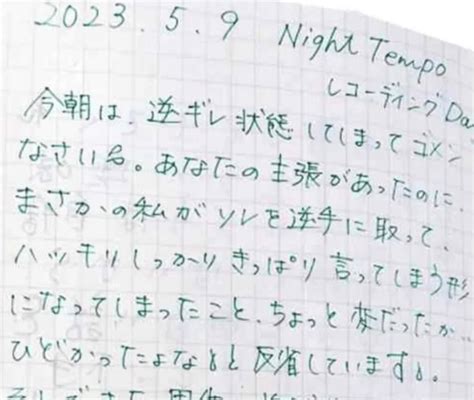 2023.5.9 Night Tempo
レコーディングDa
今朝は、逆ギレ状態してしまってゴメン
なさい。あなたの主張があったのに、
まさかの私がソレを逆手に取って、
ハッキリしっかりきっぱり言ってしまう形
になってしまったこと、ちょっと変だったか…
ひどかったよなぁと反省しています。